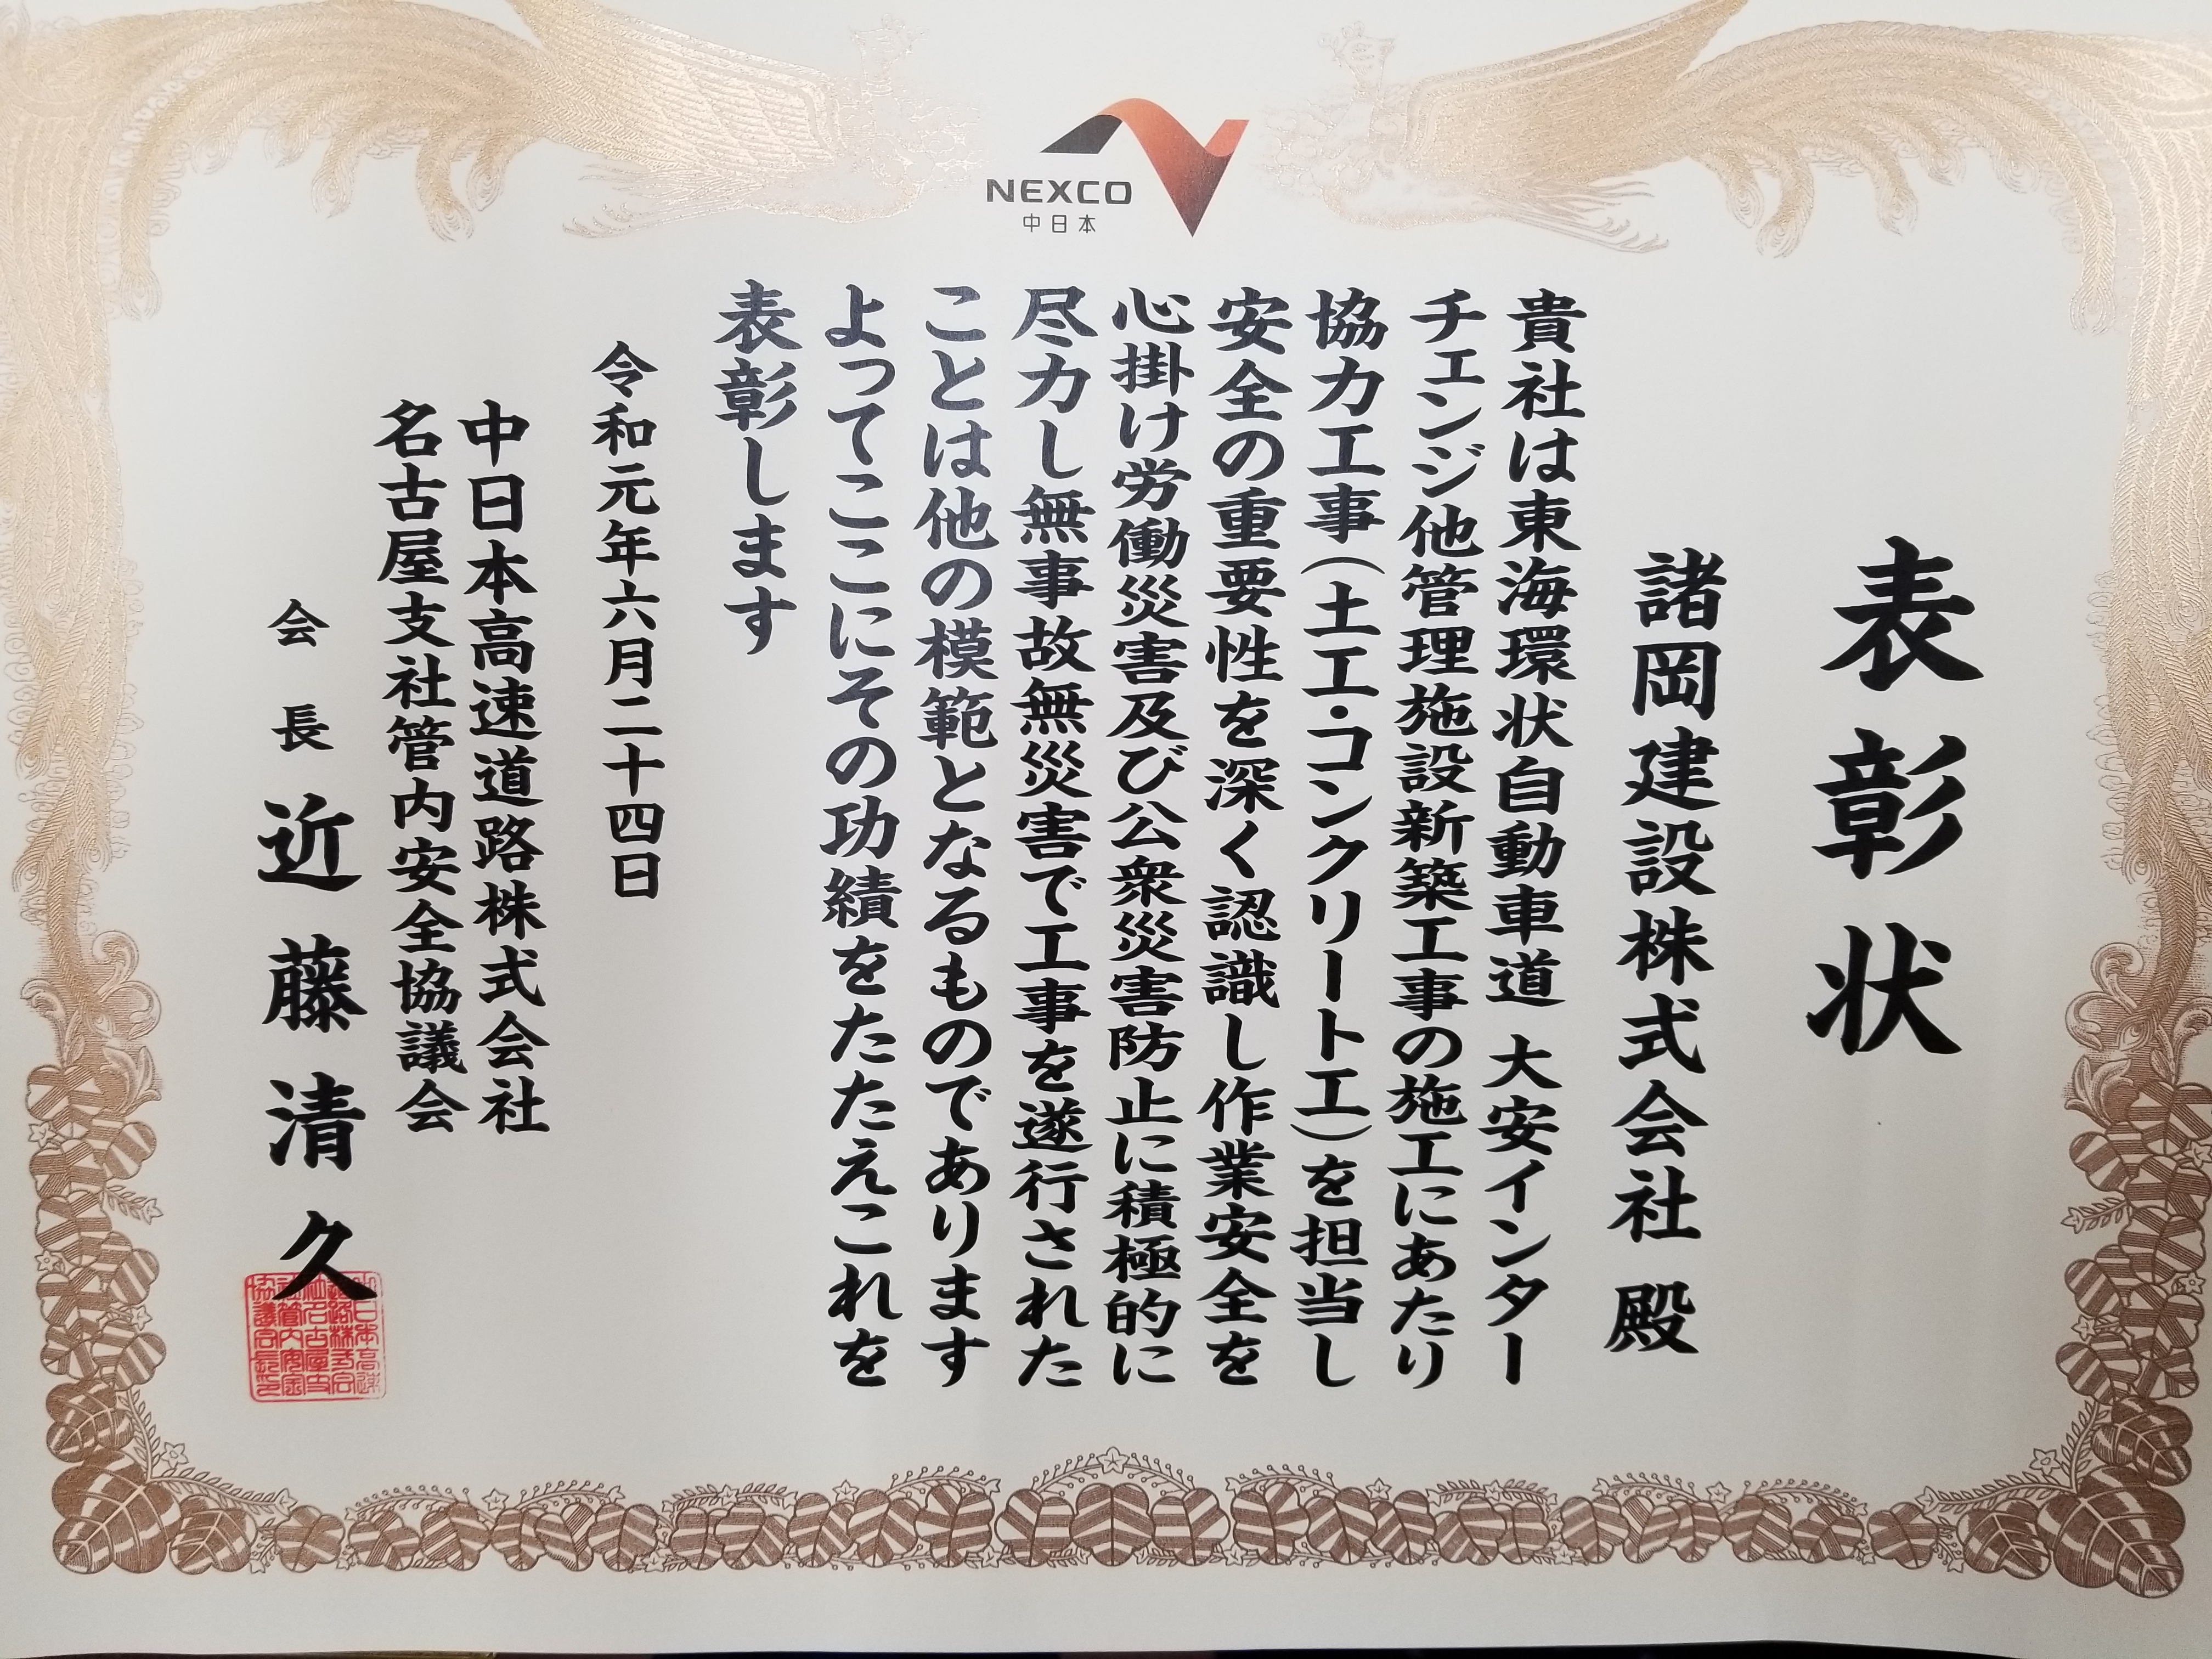 NEXCO
中日本
表彰状
諸岡建設株式会社 殿
貴社は東海環状自動車道 大安インター
チェンジ他管理施設新築工事の施工にあたり
協力工事(土工・コンクリート工)を担当し
安全の重要性を深く認識し作業安全を
心掛け労働災害及び公衆災害防止に積極的に
尽力し無事故無災害で工事を遂行された
ことは他の模範となるものであります
よってここにその功績をたたえこれを
表彰します
令和元年六月二十四日
中日本高速道路株式会社
名古屋支社管内安全協議会
会長 近藤清久